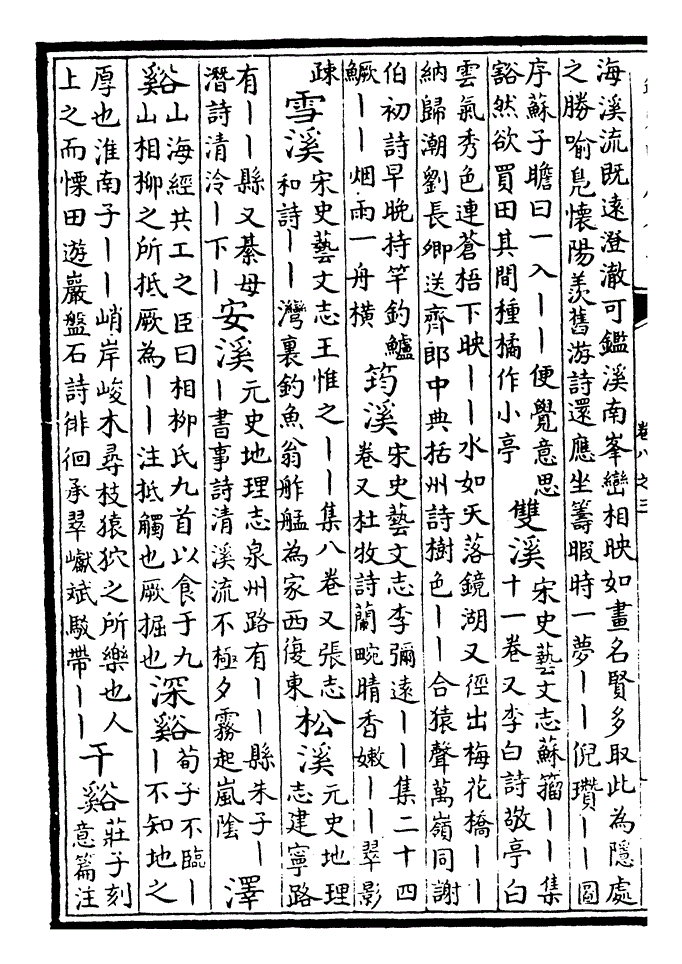 海溪流既遠澄澈可鑑溪南峯巒相映如畫名賢多取此為隱處
之勝喻鳧懷陽羨舊游詩還應坐籌暇時一夢丨丨倪瓚丨丨圖
序蘇子瞻曰一入丨丨便覺意思
豁然欲買田其間種橘作小亭
雙溪
宋史藝文志蘇籀丨丨集
十一卷又李白詩敬亭白
雲氣秀色連蒼梧下映丨丨水如天落鏡湖又徑出梅花橋丨丨
納歸潮劉長卿送齊郎中典括州詩樹色丨丨合猿聲萬嶺同謝
伯初詩早晚持竿釣鱸
鱖丨丨烟雨一舟橫
筠溪
宋史藝文志李彌遠丨丨集二十四
卷又杜牧詩蘭畹晴香嫩丨丨翠影
疎
雪溪
宋史藝文志王惟之丨丨集八卷又張志
和詩丨丨灣裏釣魚翁舴艋為家西復東
松溪
元史地理
志建寧路
有丨丨縣又綦母
潛詩清泠丨下丨
安溪
元史地理志泉州路有丨丨縣朱子丨
丨書事詩清溪流不極夕霧起嵐陰
澤
谿
山海經共工之臣曰相柳氏九首以食于九
山相柳之所抵厥為丨丨注抵觸也厥掘也
深谿
荀子不臨丨
丨不知地之
厚也淮南子丨丨峭岸峻木尋枝猿狖之所樂也人
上之而慄田遊巖盤石詩徘徊承翠巘斌駮帶丨丨
干谿
莊子刻
意篇注
卷八之三